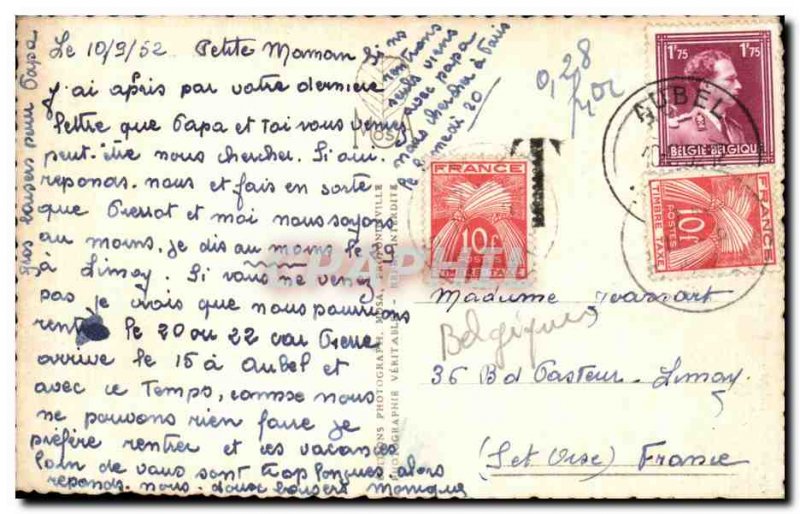 Le 10/9/52 Petite Maman
J'ai appris par votre dernière
lettre que Papa et Toi vous venez
peut-être nous chercher. Si oui
reponds. nous et fais en sorte
que Pierrot et moi nous soyons
au moins, je dis au moins le 19
à Limay. Si vous ne venez
pas je crois que nous pourrions
rentrer le 20 ou 22 car Pierre
arrive le 15 à Aubel et
avec ce Temps, comme nous
ne pouvons rien faire je
préfère rentrer et ces vacances
loin de vous sont trop longues alors
reponds. nous. doux baisers Monique
Gros baisers pour Papa
Si nous
rentrons
seuls viens
avec papa
nous chercher à Paris
le samedi 20
0,28
T
AUBEL
1F75 1F75
BELGIE-BELGIQUE
FRANCE
10F
POSTES
TIMBRE TAXE
FRANCE
10F
POSTES
TIMBRE TAXE
CPAPHIL
PHOTOGRAPHIE VÉRITABLE
Madame
Belgique
36 Bd Pasteur. Limay
(Set Oise) France